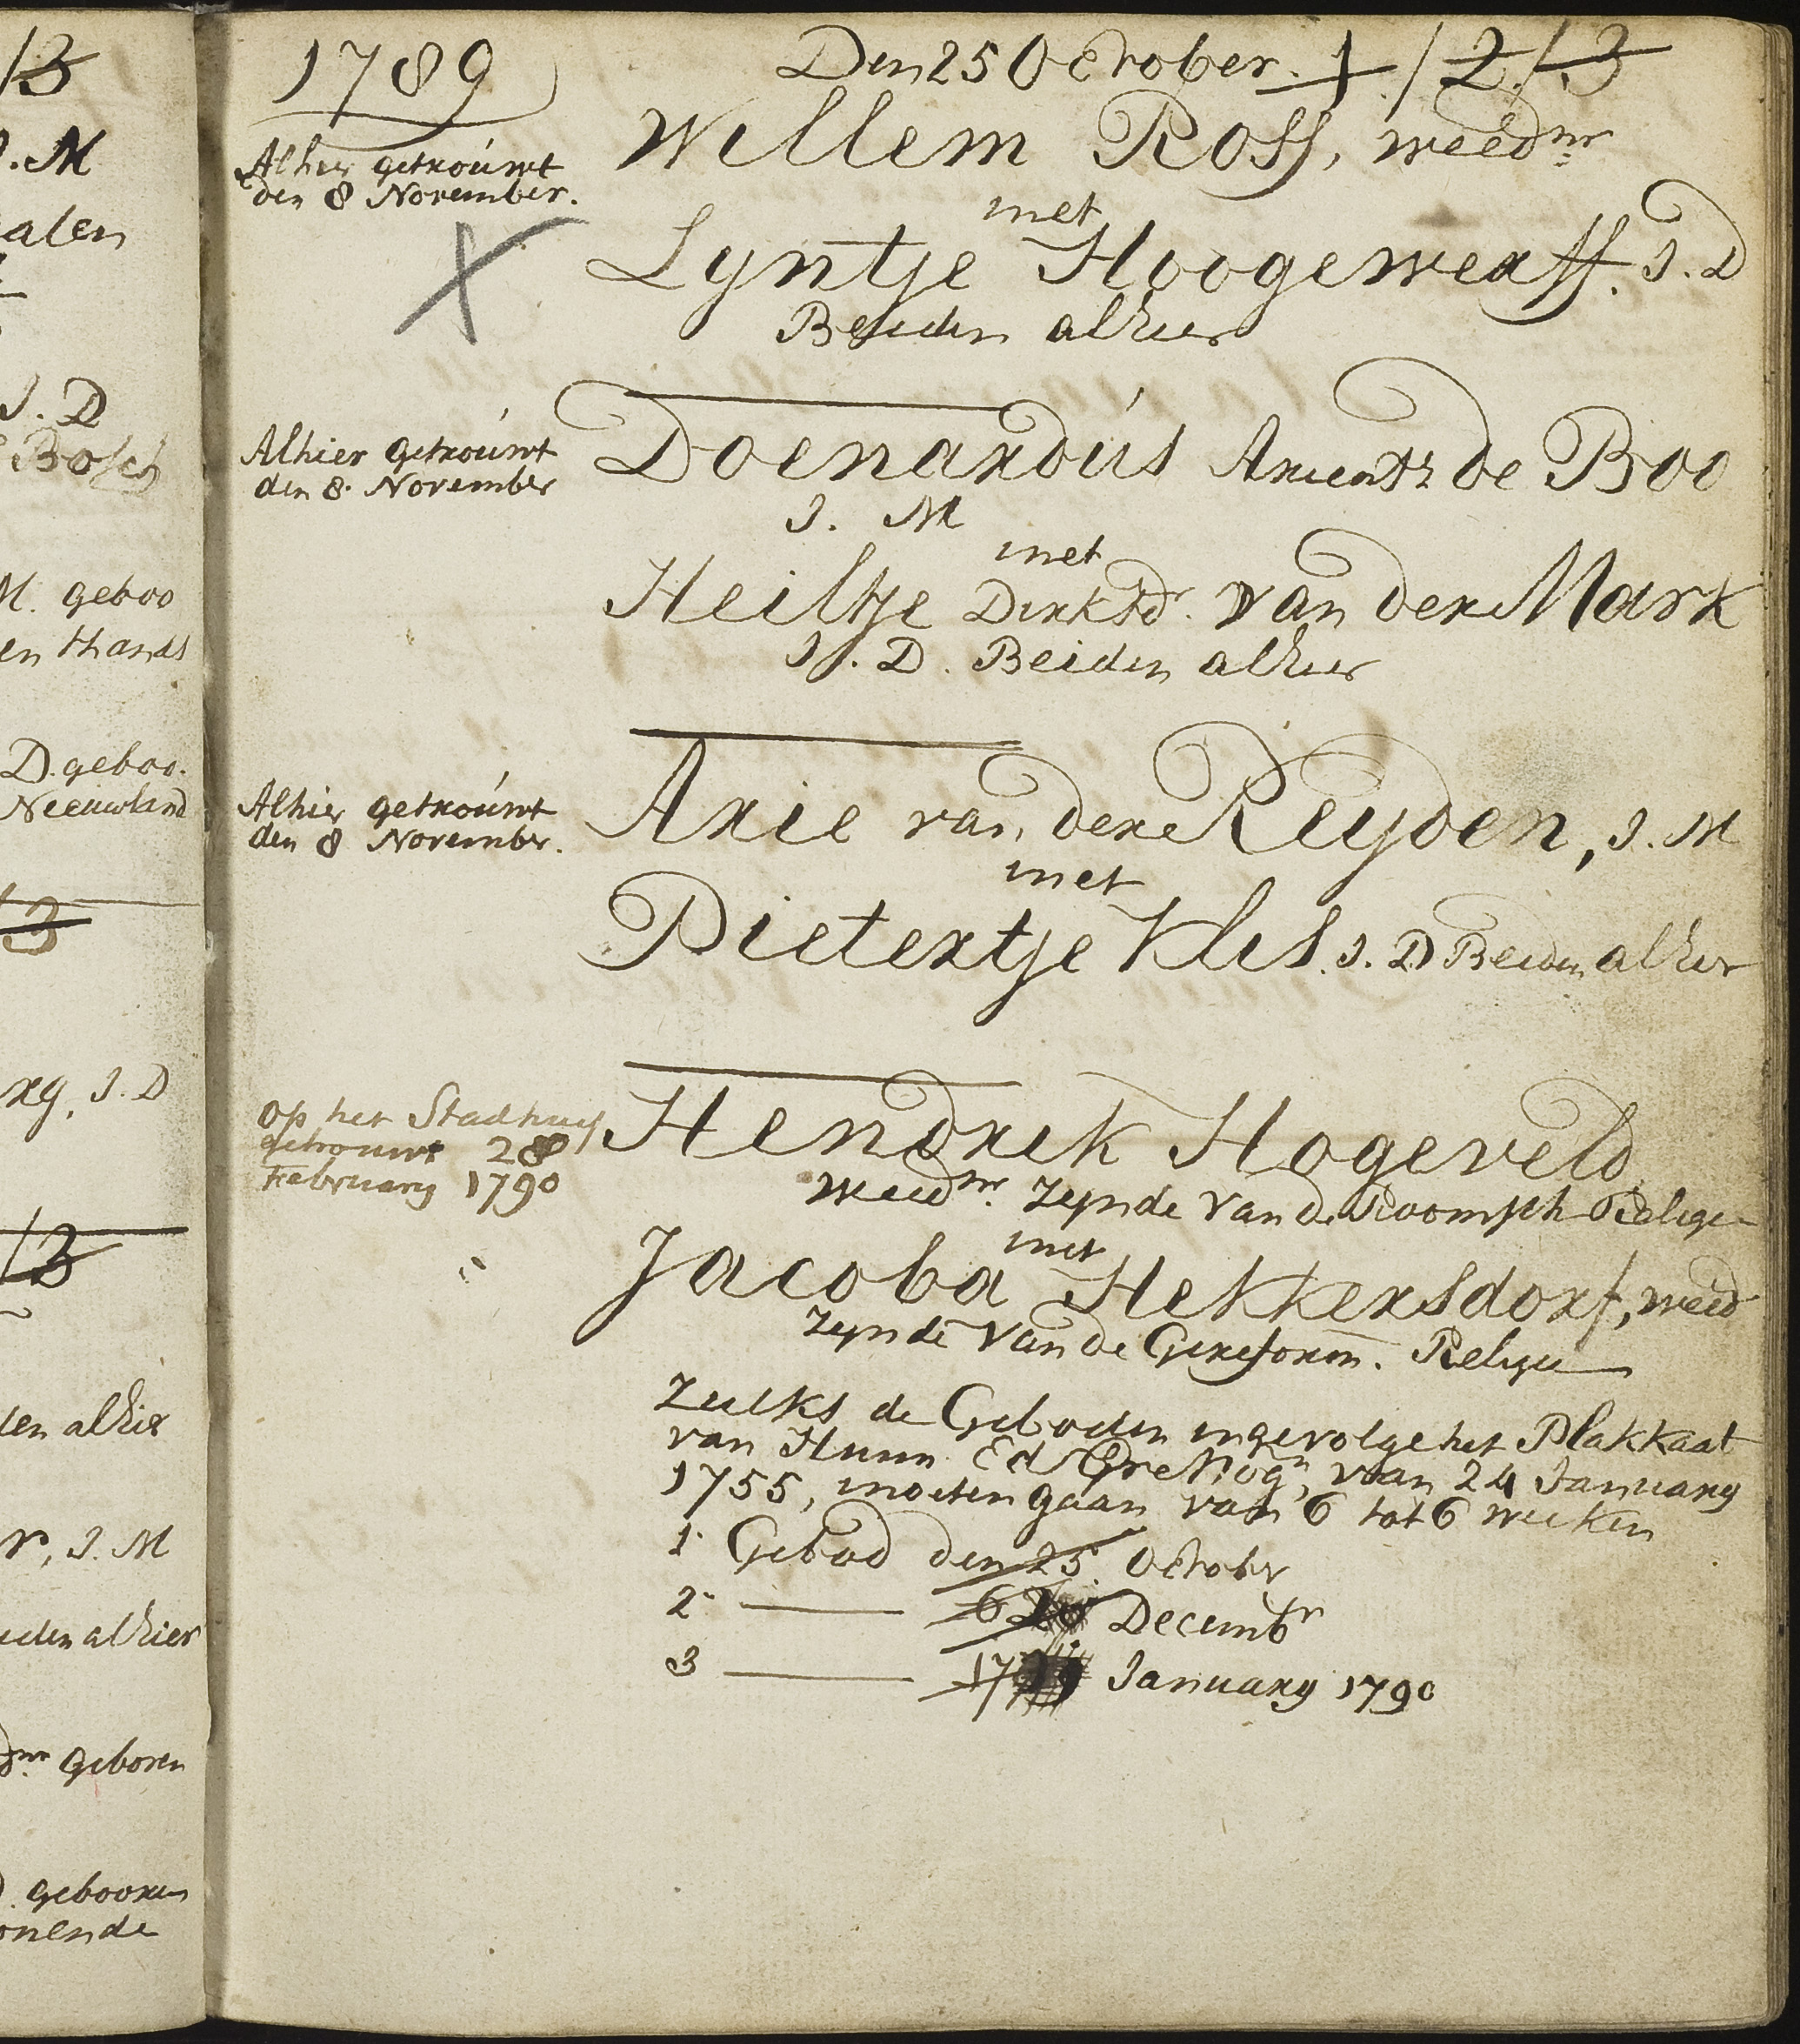 /3
M
alen
J. D
Bosch
M. geboo
en thands
D. geboo.
Neeuwland
3
rg, J. D
/3
den alhier
r, J. M
eiden alhier
geboren
gebooren
onende
1789
Den 25 October. 1 / 2 / 3
Alhier getrouwt
den 8 November.
Willem Ross, weednr
met
Lyntje Hoogewerff. J. D
Beiden alhier
Alhier getrouwt
den 8. November
Doenardús Arientsz de Boo
J. M
met
Heiltje Dirksdr. van der Mark
J. D. Beiden alhier
Alhier getrouwt
den 8 November.
Arie van der Reyden, J. M
met
Pietertje Klis. J. D Beiden alhier
Op het Stadhuys
getrouwt 28
February 1790
Hendrik Hogeveld
weednr. Zynde van de Roomsch Religie
met
Jacoba Hekkersdorf, weed
Zynde van de Gereform. Religie
Zulks de Geboden ingevolge het Plakkaat
van Hunn Ed Gr Mogn, van 24 January
1755, moeten gaan van 6 tot 6 weeken
1. Gebod den 25. October
2. — 6 Decembr
3 — 17 January 1790